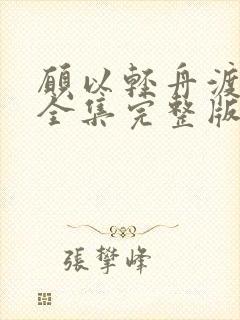 願以輕舟渡
全集完整版
張攀峰